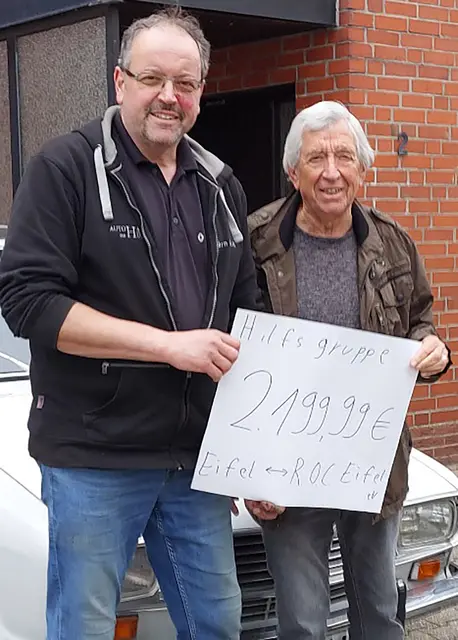 Hilfsgruppe
2.199,99€
Eifel ↔ ROC Eifel
eV
2